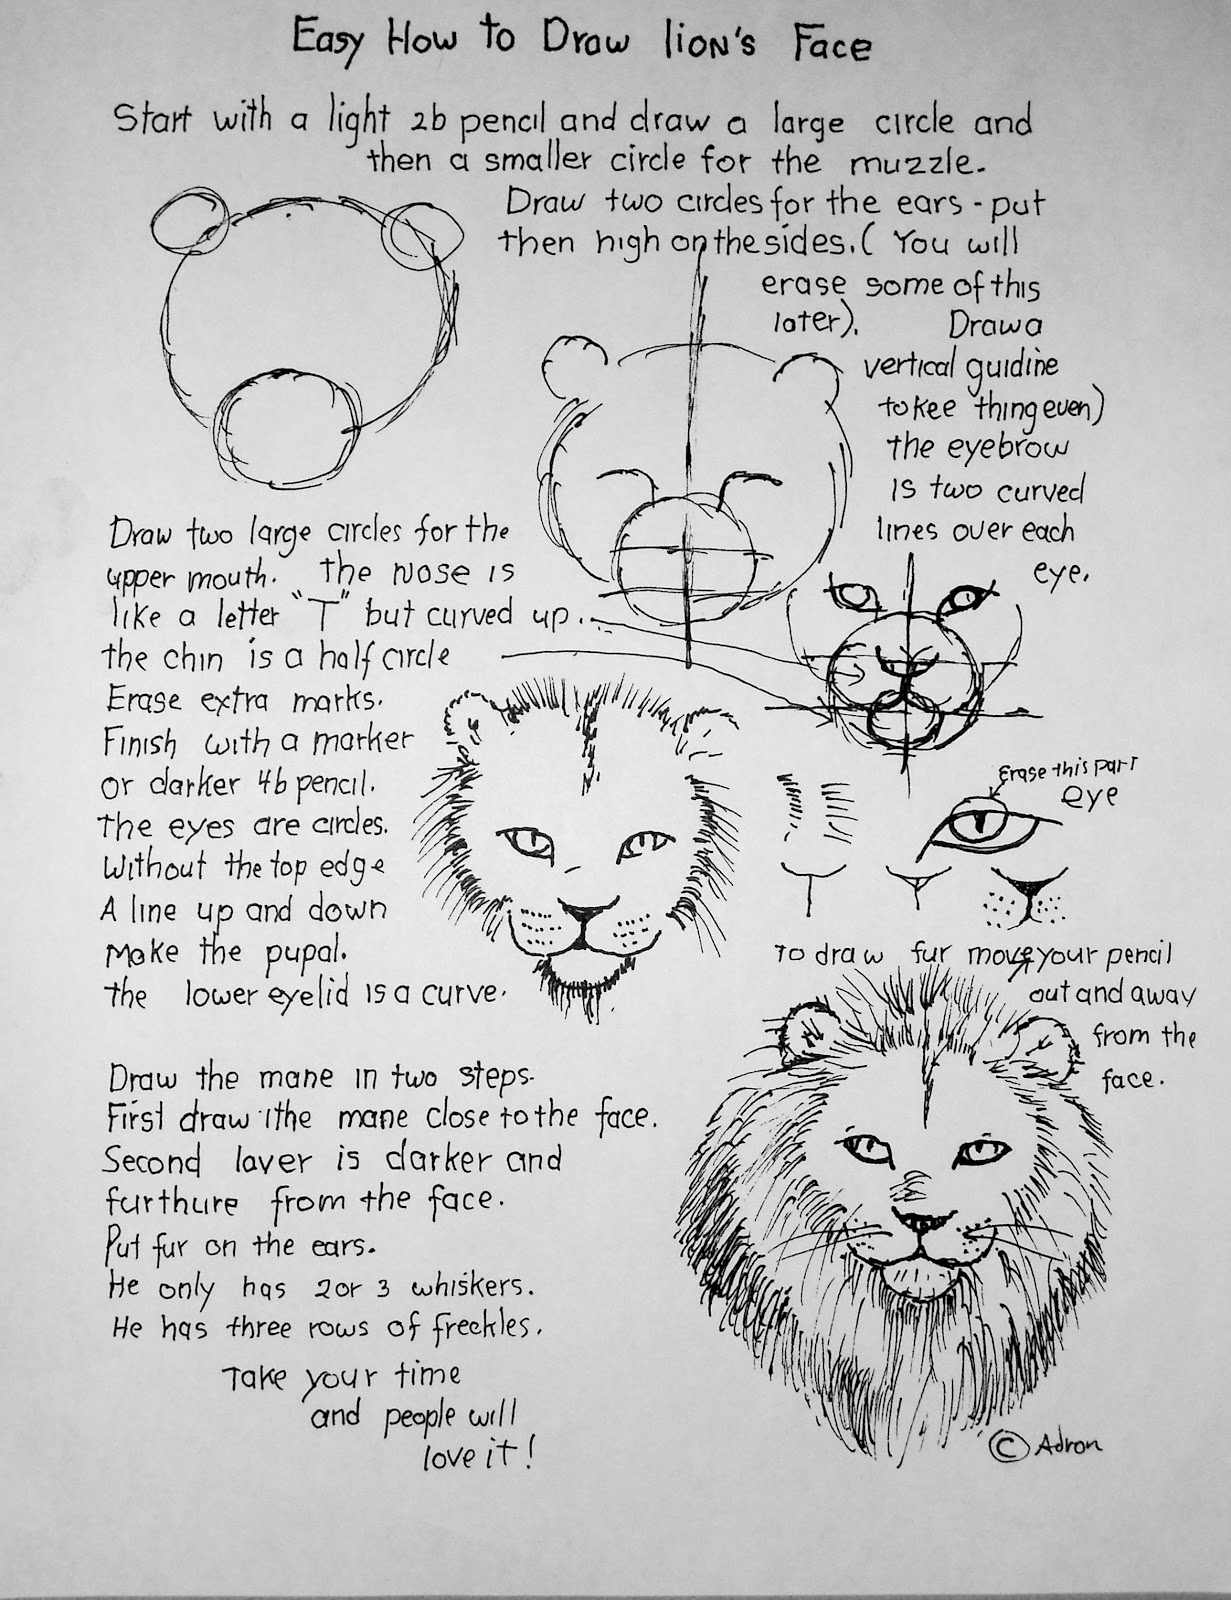 Easy How to Draw lion's Face
Start with a light 2b pencil and draw a large circle and
then a smaller circle for the muzzle.
Draw two circles for the ears - put
then high on the sides. ( You will
erase some of this
later). Draw a
vertical guidine
to kee thing even)
the eyebrow
is two curved
lines over each
eye.
Draw two large circles for the
upper mouth. the nose is
like a letter "T" but curved up.
the chin is a half circle
Erase extra marks.
Finish with a marker
or darker 4b pencil.
the eyes are circles.
Without the top edge
A line up and down
Make the pupal.
the lower eyelid is a curve.
Erase this part
eye
To draw fur move your pencil
out and away
from the
face.
Draw the mane in two steps.
First draw the mane close to the face.
Second layer is darker and
furthure from the face.
Put fur on the ears.
He only has 2 or 3 whiskers.
He has three rows of freckles.
Take your time
and people will
love it!
© Adron